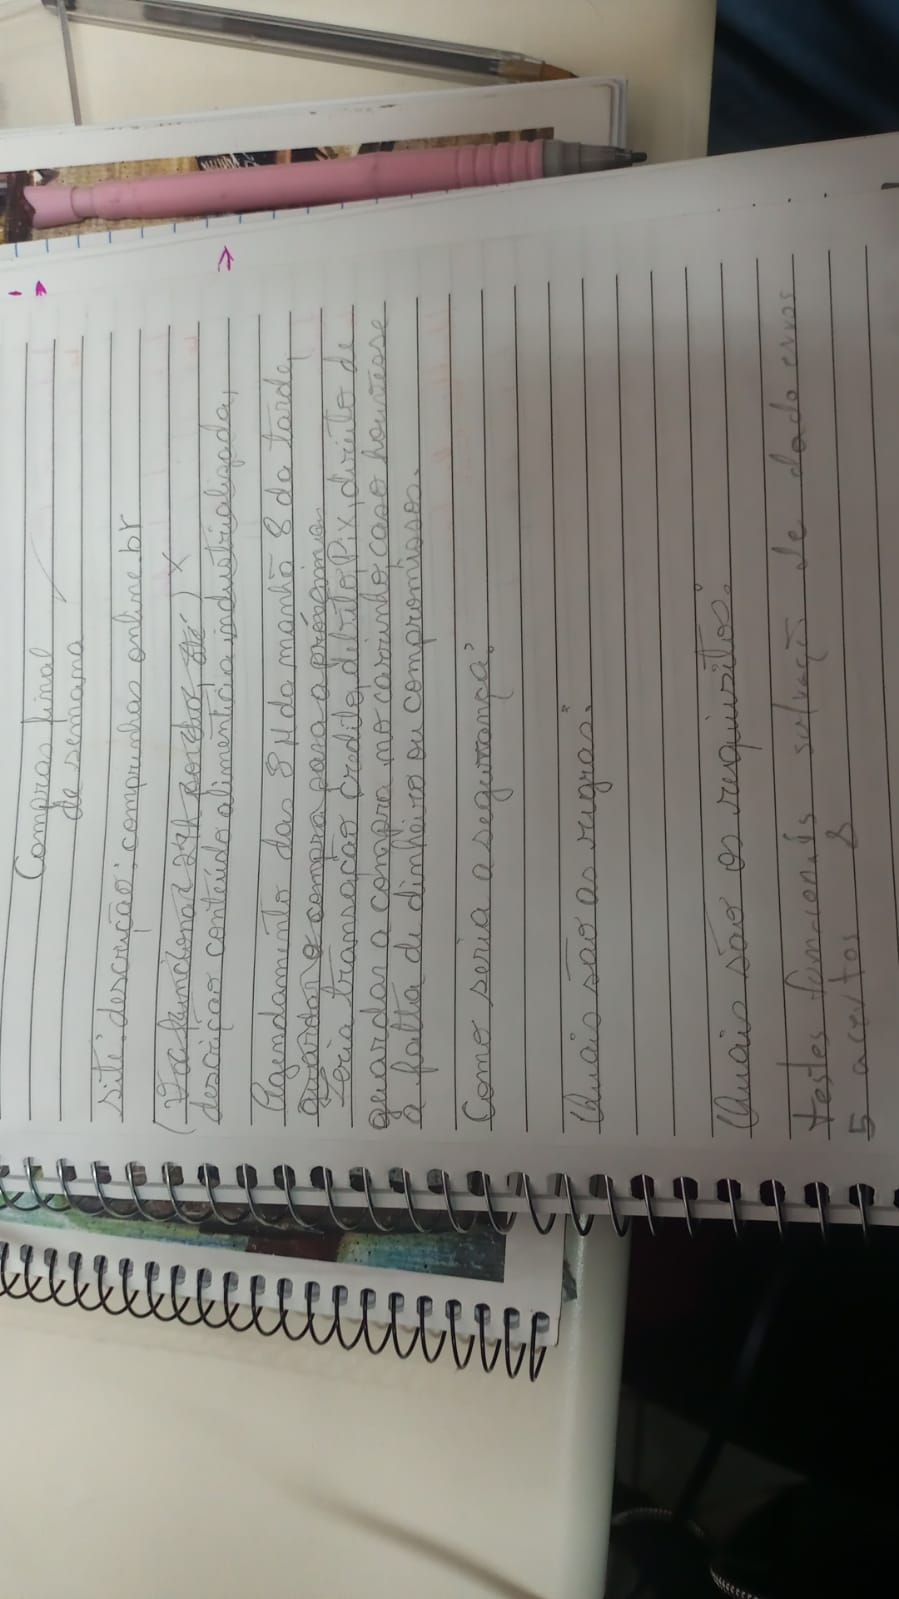 Compras final
de semana
Site: descrição: comprinhas online br
(Vai funcionar 24h por dia, até) x
descrição conteúdo alimentícia industrializada,
Agendamento das 8H da manhã 8 da tarde,
guardar a compra para a próxima
Teria transação credito, debito Pix, direito de
guardar a compra no carrinho caso houvesse
a falta de dinheiro ou compromissos.
Como seria a segurança?
Quais são as regras.
Quais são os requisitos.
testes funcionais salvação de dado erros
5 acertos 8